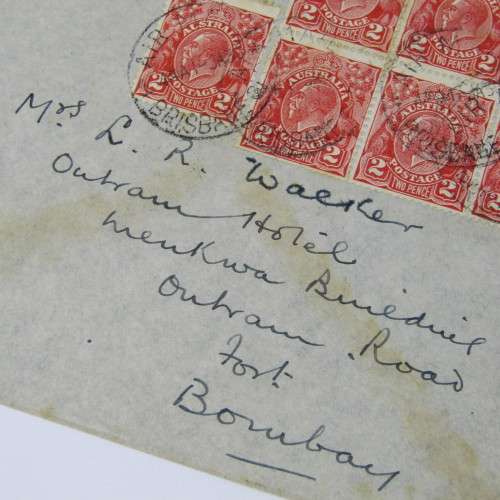 AUSTRALIA
2 POSTAGE 2
TWO PENCE
AIR
BRISBANE
AUSTRALIA
2 POSTAGE 2
TWO PENCE
AUSTRALIA
2 POSTAGE 2
TWO PENCE
POSTAGE 2
TWO PENCE
POSTAGE
TWO PENCE
2
Mrs L. R. Walker
Outram Hotel
Menkwa Building
Outram Road
Fort
Bombay